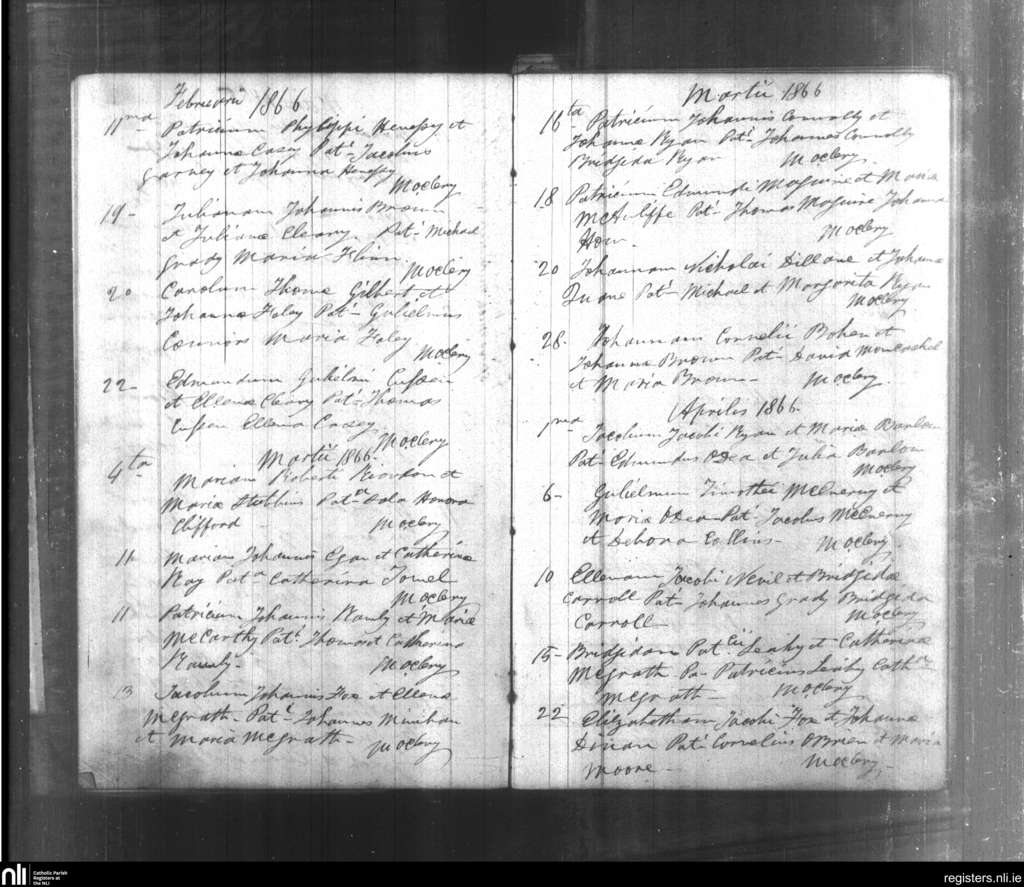 Februarii 1866
11ma Patricium Philippi Henessy et
Johanna Casey Pat.i Jacobus
Garvey et Johanna Henessy
McClery
19- Julianam Johannis Brown
et Juliana Cleary Pat.i Michael
Grady Maria Flinn
McClery
20 Carolum Thoma Gilbert et
Johanna Foley Pat.i Gulielmus
Connors Maria Foley
McClery
22- Edmundum Gulielmi
et Ellena Cleary Pat.i Thomas
Ellena Casey
McClery
Martii 1866
4ta Mariam Roberti Riordan et
Maria Stubbins Pat.a Sola Honora
Clifford McClery
11 Mariam Johannis Egan et Catherina
Ray Pat.a Catherina
McClery
11 Patricium Johannis et Maria
McCarthy Pat.i Thomas et Catherina
McClery
13 Jacobum Johannis Fox et Ellena
McGrath- Pat.i Johannes Minihan
et Maria McGrath- McClery
Martii 1866
16ta Patricium Johannis Connolly et
Johanna Ryan Pat.i Johannes Connolly
Bridgida Ryan McClery
18 Patricium Edmundi Maguire et Maria
McAuliffe Pat.i Thomas Maguire Johanna
How- McClery
20 Johannam Nicholai Dillane et Johanna
Duane Pat.i Michael et Margarita Ryan
McClery
28- Johannam Cornelii Bohen et
Johanna Brown Pat.i David
et Maria Brown- McClery
Aprilis 1866
1ma Jacobum Jacobi Ryan et Maria Barlow
Pat.i Edmundus ODea et Julia Barlow
McClery
6- Gulielmum Timothei McEnerny et
Maria ODea Pat.i Jacobus McEnerny
et Debora Collins- McClery
10 Ellenam Jacobi Nevil et Bridgida
Carroll Pat.i Johannes Grady Bridgida
Carroll McClery
15- Bridgidam Pat.cii Leahy et Catherina
McGrath Pa- Patricius Leahy Cath.na
McGrath- McClery
22 Elizabetham Jacobi Fox et Johanna
Dinan Pat.i Cornelius OBrien et Maria
Moore- McClery
nli Catholic Parish
Registers at
the NLI
registers.nli.ie